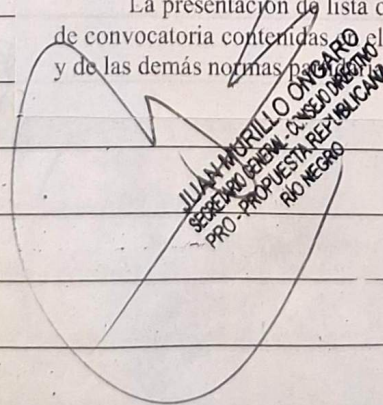 La presentación de lista
de convocatoria contenidas el
y de las demás normas
JUAN MURILLO ONGARO
SECRETARIO GENERAL - CONSEJO DIRECTIVO
PRO - PROPUESTA REPUBLICANA
RÍO NEGRO